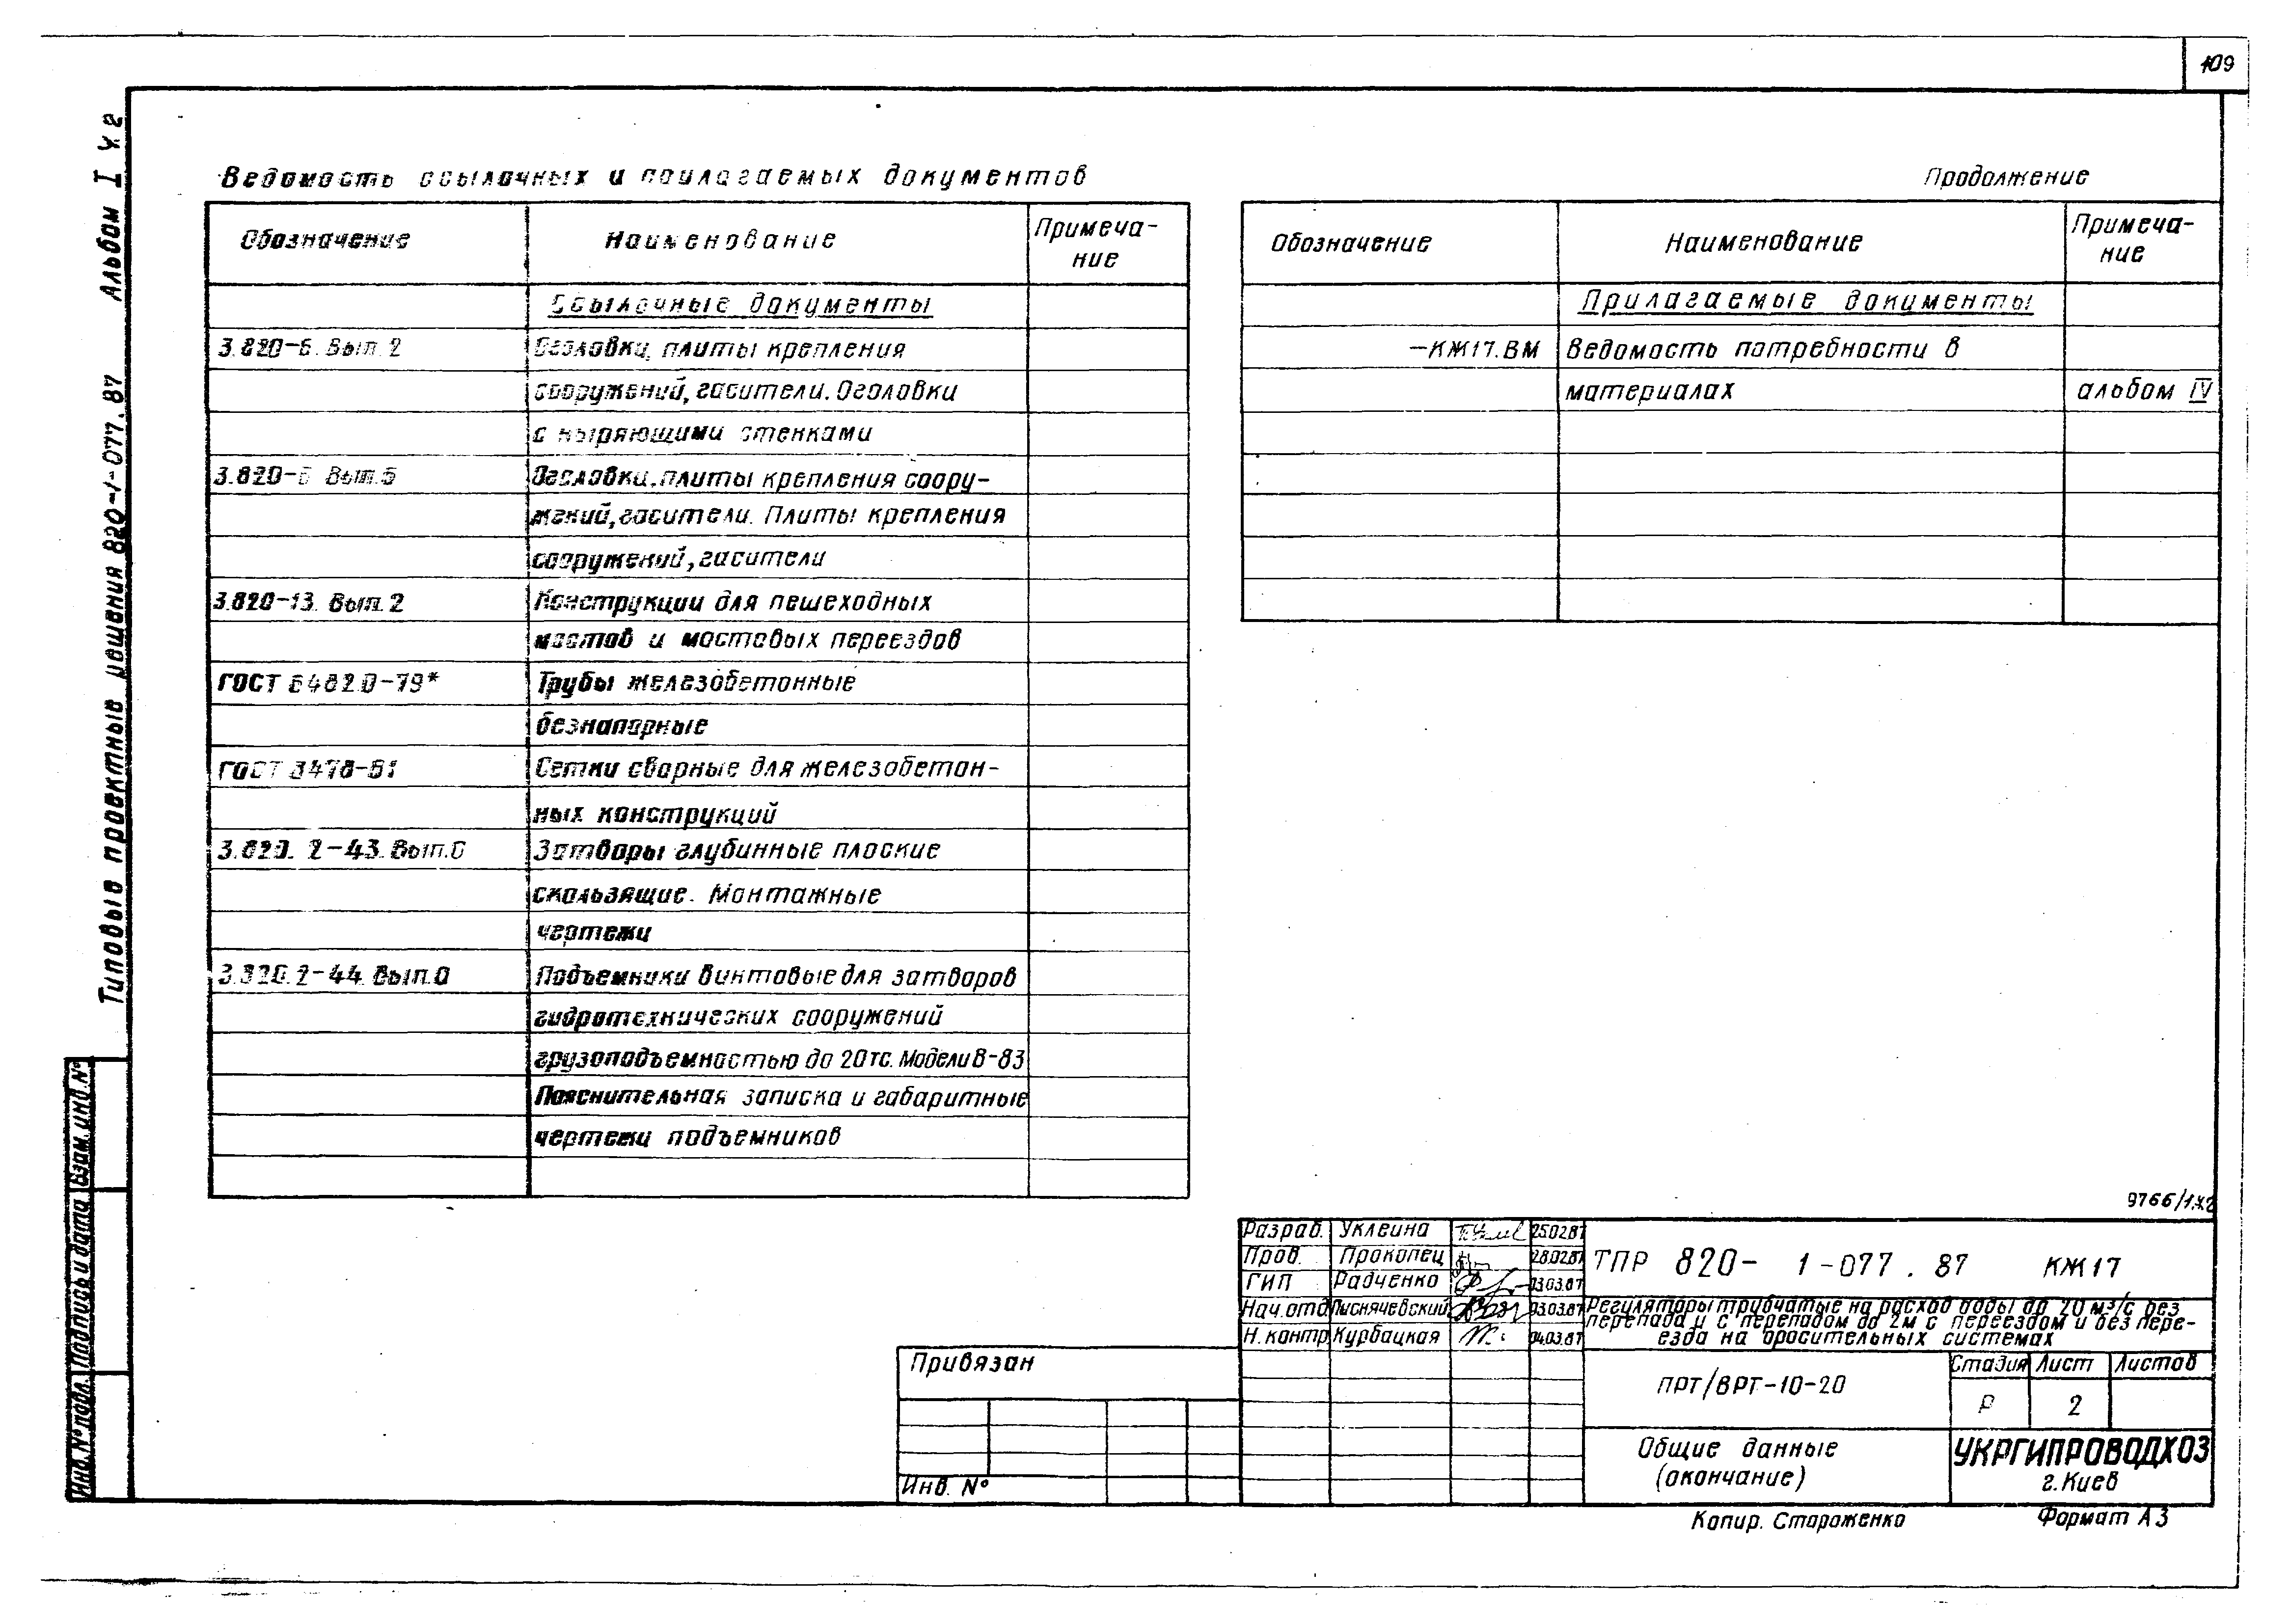 109
Ведомость ссылочных и прилагаемых документов
Обозначение
Наименование
Примеча-
ние
Ссылочные документы
3.820-6. Вып. 2
Оголовки, плиты крепления
сооружений, гасители. Оголовки
с ныряющими стенками
3.820-6 Вып.5
Оголовки, плиты крепления соору-
жений, гасители. Плиты крепления
сооружений, гасители
3.820-13. Вып. 2
Конструкции для пешеходных
мостов и мостовых переездов
ГОСТ
Трубы железобетонные
безнапорные
ГОСТ 8478-81
Сетки сварные для железобетон-
ных конструкций
3.820. 2-43. Вып.0
Затворы глубинные плоские
скользящие. Монтажные
чертежи
3.820.2-44. Вып.0
Подъемники винтовые для затворов
гидротехнических сооружений
грузоподъемностью до 20тс. Модели В-83
Пояснительная записка и габаритные
чертежи подъемников
Продолжение
Обозначение
Наименование
Примеча-
ние
Прилагаемые документы
-КЖ17.ВМ
Ведомость потребности в
материалах
альбом IV
Типовые проектные решения 820-1-077.87 Альбом I ч.2
Взам. инв. №
Подпись и дата
Инв. № подл.
9766/1.ч2
Разраб. Уклеина 25.02.87
Пров. Прокопец 28.02.87
ГИП Радченко 03.03.87
Нач. отд Лыснячевский 03.03.87
Н. контр. Курбацкая 04.03.87
ТПР 820- 1-077. 87 КЖ17
Регуляторы трубчатые на расход воды до 20 м³/с без
перепада и с перепадом до 2м с переездом и без пере-
езда на оросительных системах
ПРТ/ВРТ-10-20
Стадия Лист Листов
Р 2
Общие данные
(окончание)
УКРГИПРОВОДХОЗ
г. Киев
Привязан
Инв. №
Копир. Стороженко
Формат А3